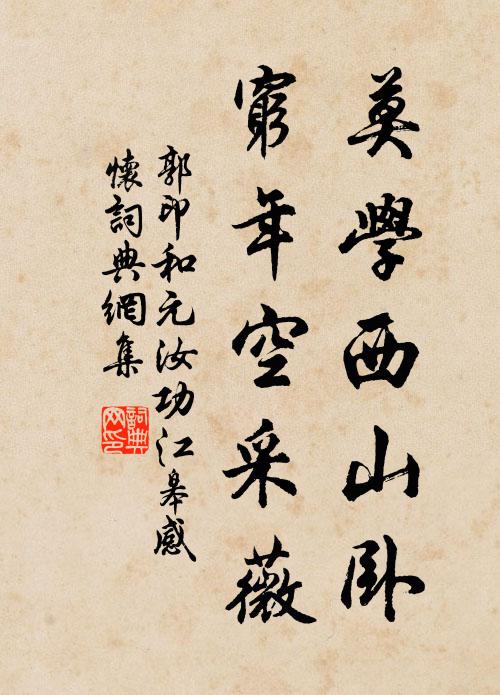 莫學西山臥
窮年空采薇
郭印和元汝功江皋感
懷詞典網集
詞典
网印